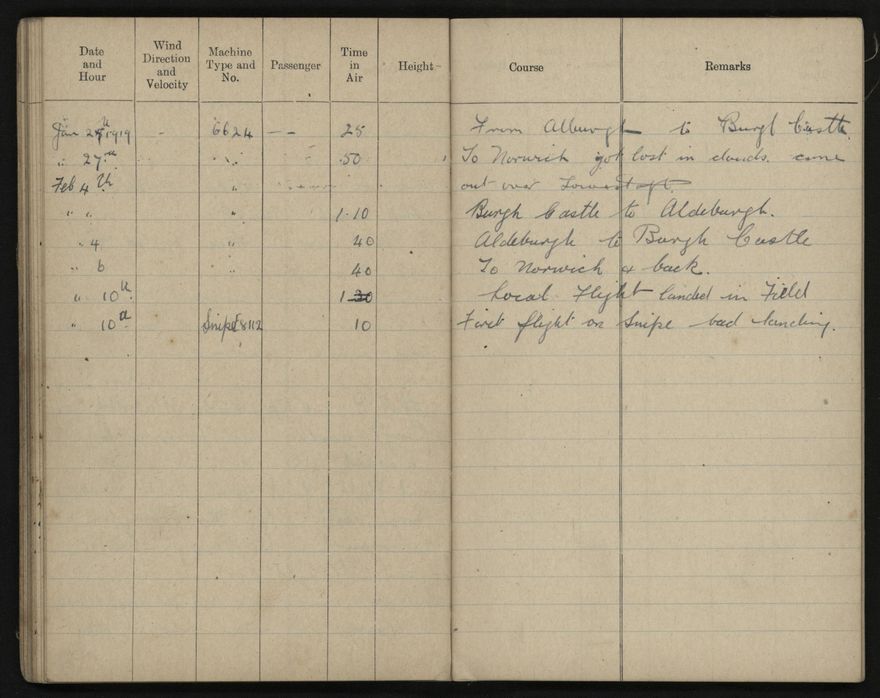 Date and Hour Wind Direction and Velocity Machine Type and No. Passenger Time in Air Height Course Remarks
Jan 1919 - 6624 - - 25 From Alburgh to Burgh Castle.
" 27th " " - .50 To Norwich got lost in clouds. came
Feb 4th " out over Lowestoft.
" " " 1.10 Burgh Castle to Aldeburgh.
" 4 " 40 Aldeburgh to Burgh Castle
" 6 " 40 To Norwich & back.
" 10th 1 30 Local Flight landed in Field
" 10th Snipe 8112 10 First flight on Snipe bad landing.